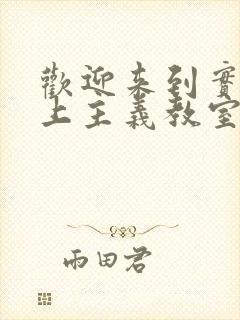 歡迎來到實
上主義教室
雨田君